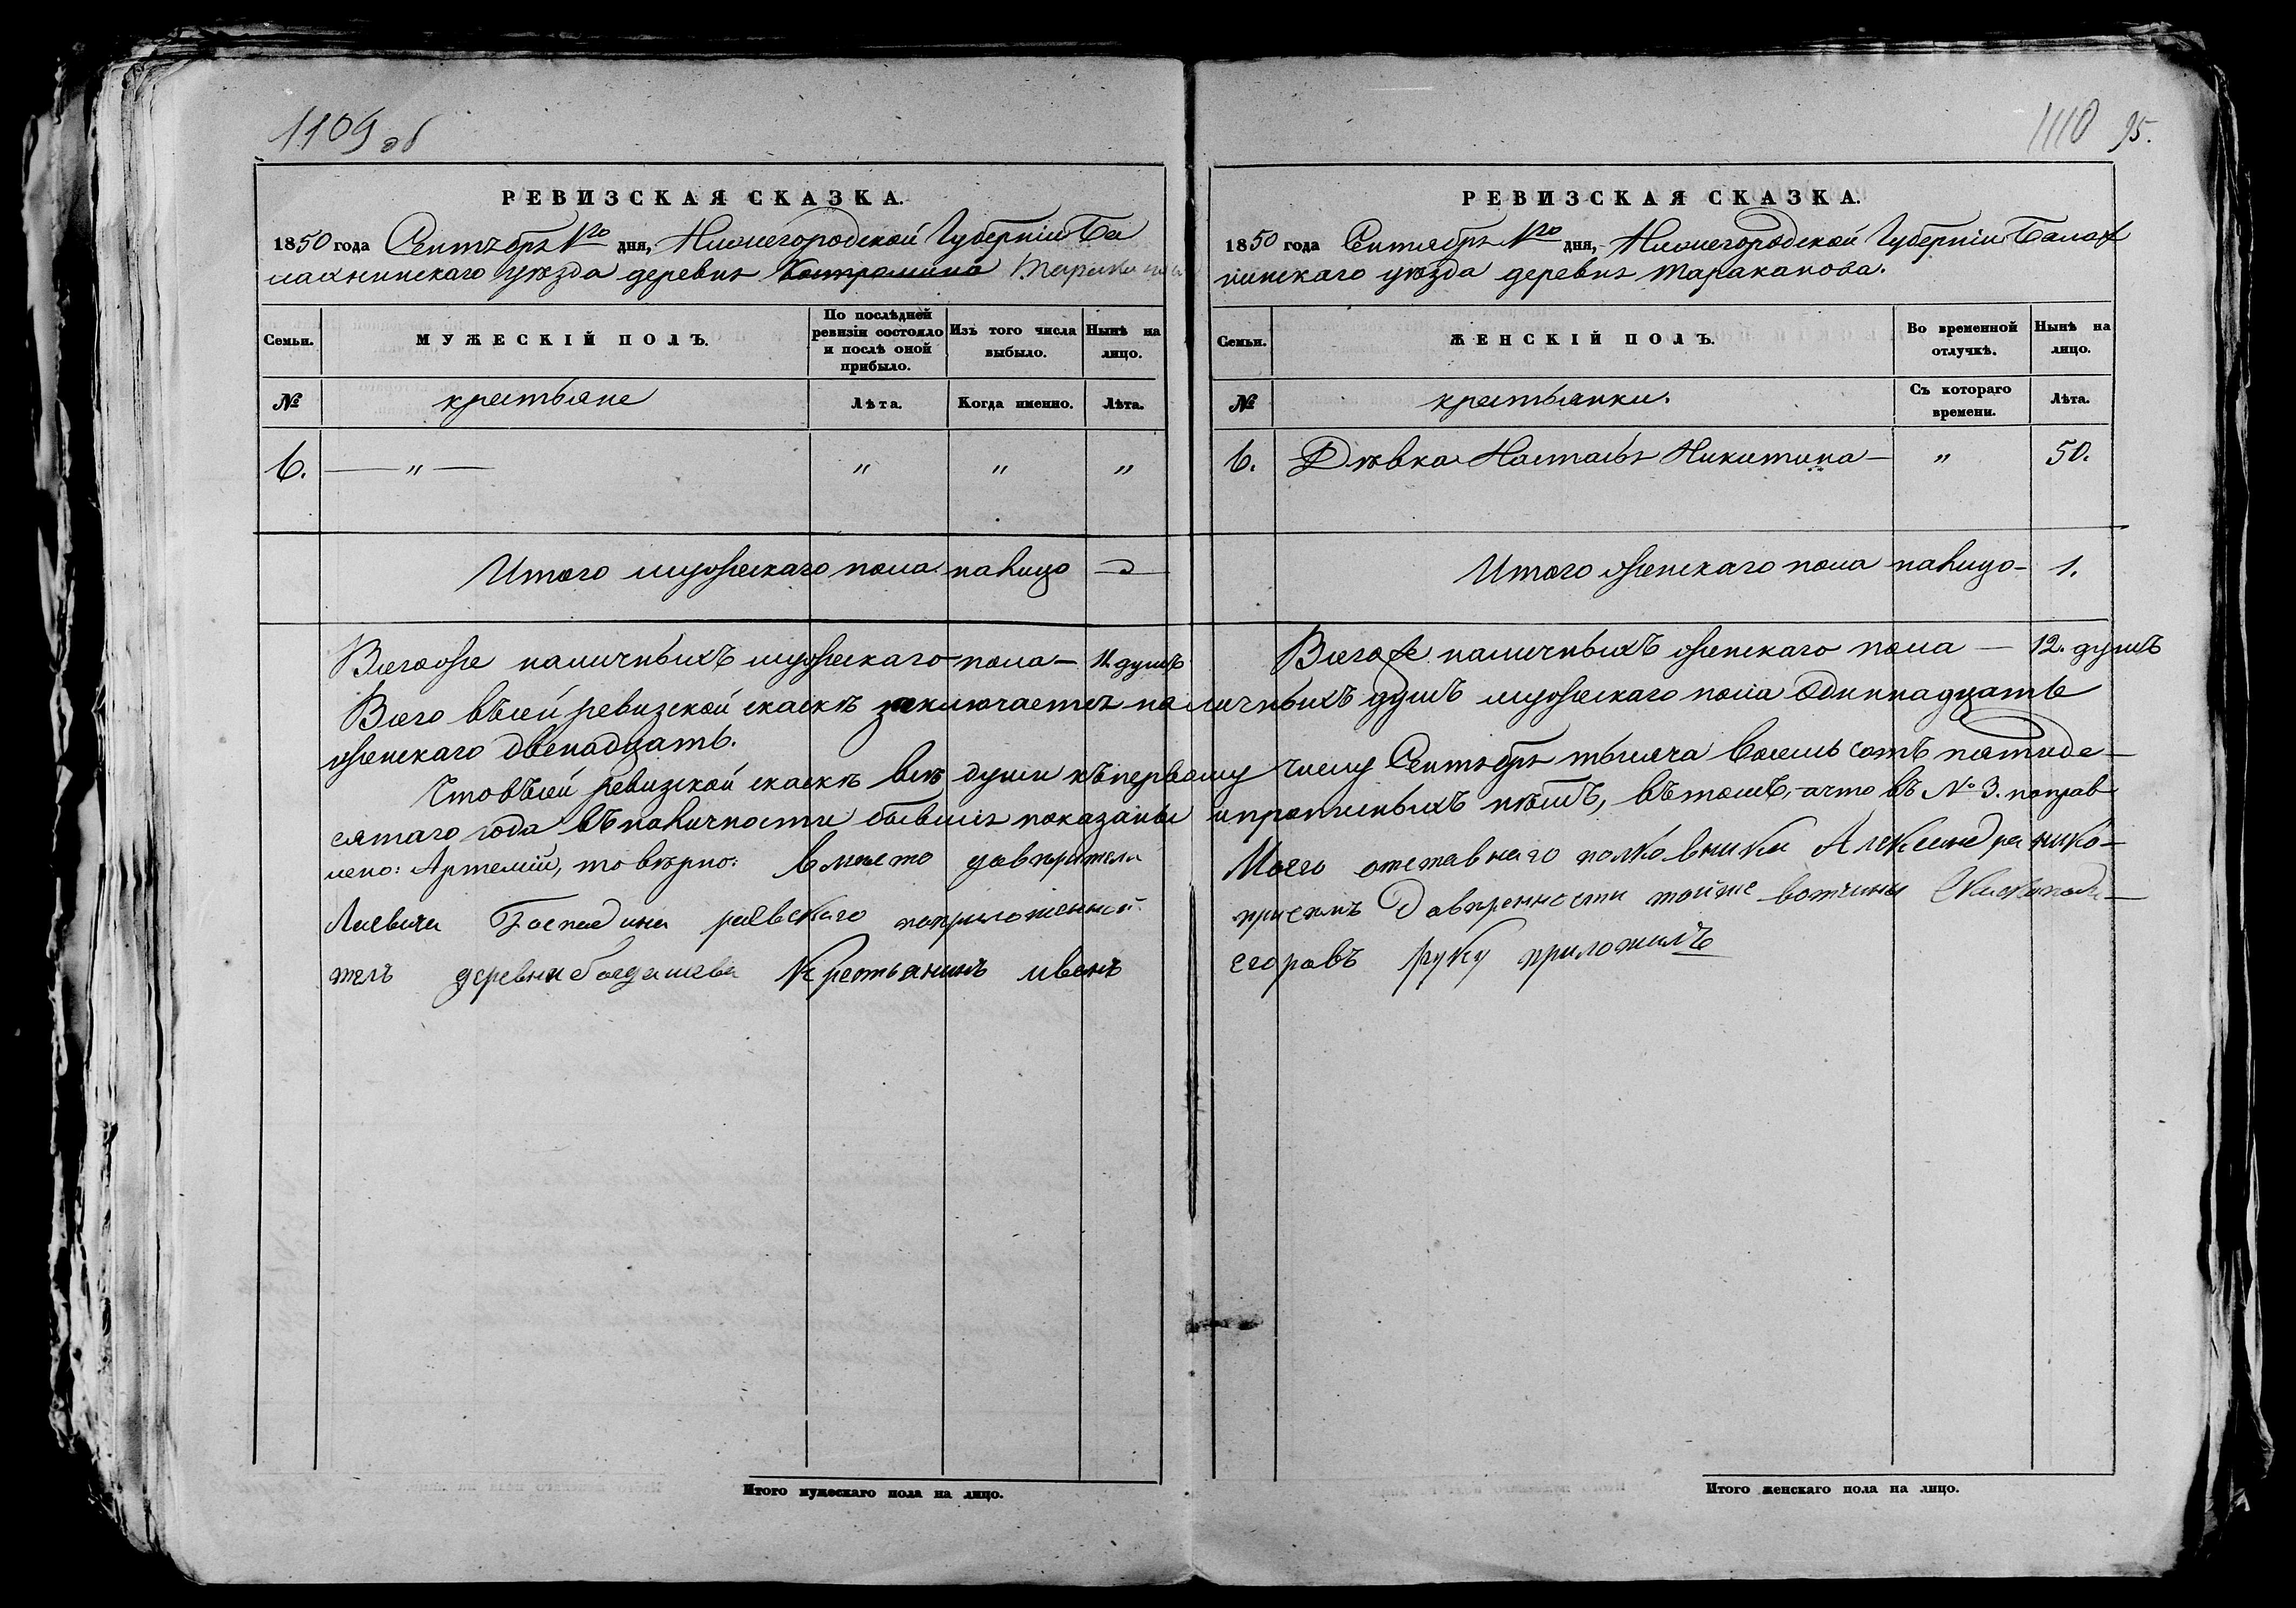 1109 об
РЕВИЗСКАЯ СКАЗКА.
1850 года Сентября 1го дня, Нижегородской Губерніи Ба
лахнинскаго уѣзда деревня Костромина Таракано
Семьи.
МУЖЕСКІЙ ПОЛЪ.
По послѣдней ревизіи состояло и послѣ оной прибыло.
Изъ того числа выбыло.
Нынѣ на лицо.
№
крестьяне
Лѣта.
Когда именно.
Лѣта.
6. — " — " " "
Итого мужескаго пола налицо —
Всегоже наличныхъ мужескаго пола — 11. душъ
Итого мужескаго пола на лицо.
1110 95.
РЕВИЗСКАЯ СКАЗКА.
1850 года Сентября 1го дня, Нижегородской Губерніи Балах
нинскаго уѣзда деревня Тараканова.
Семьи.
ЖЕНСКІЙ ПОЛЪ.
Во временной отлучкѣ.
Нынѣ на лицо.
№
крестьянки.
Съ котораго времени.
Лѣта.
6. Дѣвка Настасья Никитина — " 50.
Итого женскаго пола налицо — 1.
Всегоже наличныхъ женскаго пола — 12. душъ
Всего въсей ревизской скаскѣ заключается наличныхъ душъ мужескаго пола одиннадцать
женскаго двенадцать.
Что въсей ревизской скаскѣ всѣ души къпервому числу Сентября тысяча восемь сотъ пятиде-
сятаго года въналичности бывшія показаны ипрописныхъ нѣтъ, вътомъ, ачто въ № 3. поправ
лено: Артемій, то вѣрно: Вместо доверителя Моего отставнаго полковника Александра нико-
Лаевича Господина раевскаго поприложенной при семъ Доверенности тойже вотчины
тель деревни богдашева Крестьянинъ иванъ егоровъ руку приложилъ
Итого женскаго пола на лицо.